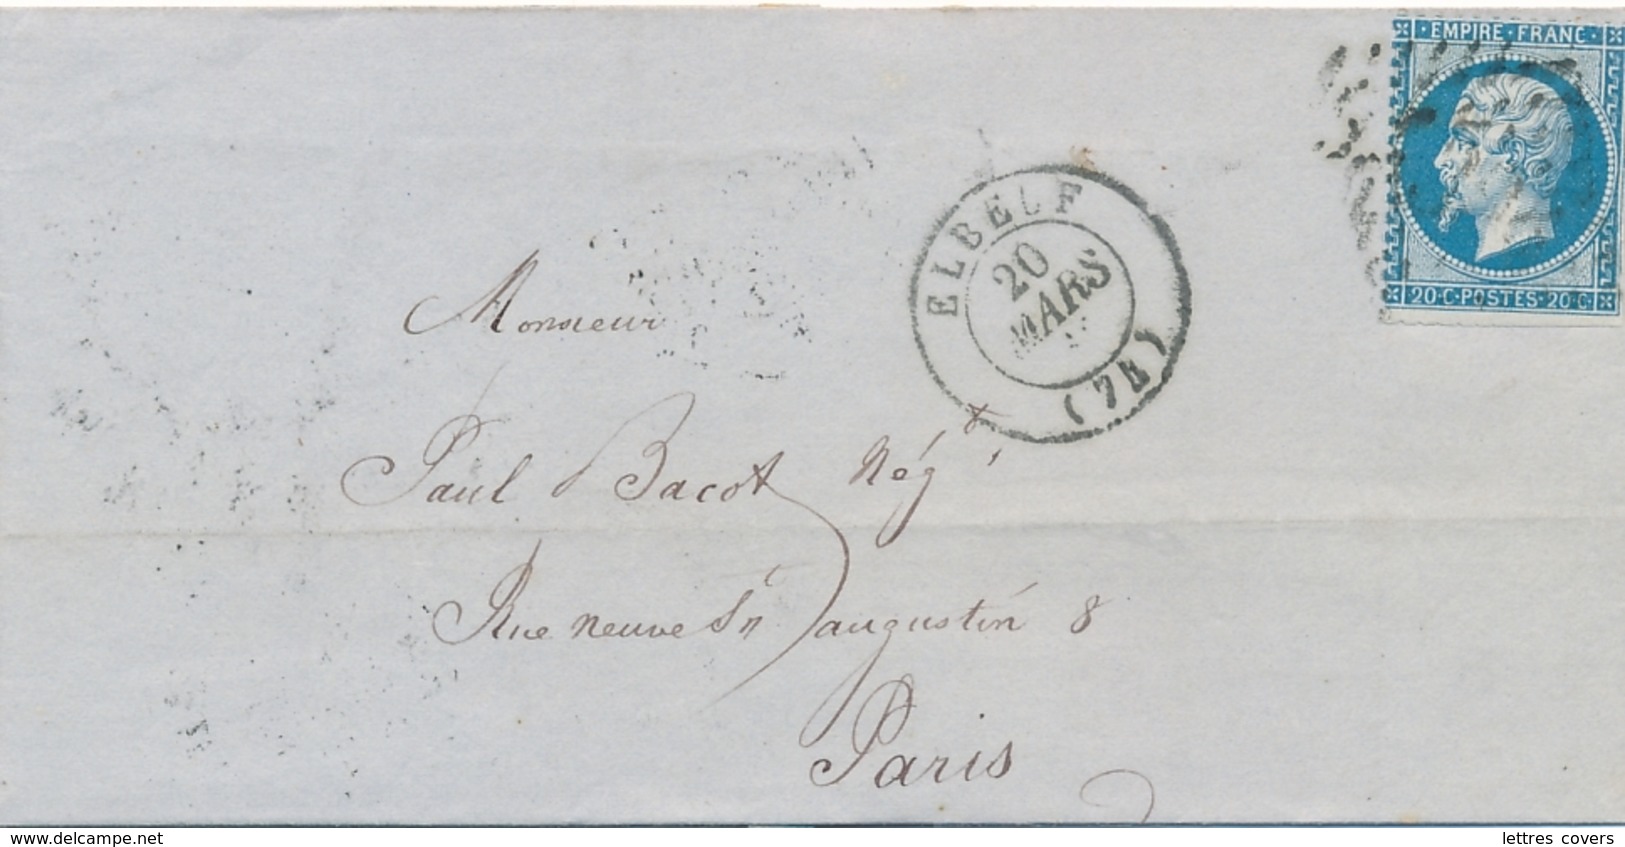 · EMPIRE · FRANC ·
20 · C · POSTES · 20 · C ·
ELBEUF
20
MARS
(74)
Monsieur
Paul Bacot Nég t
Rue neuve St augustin 8
Paris
www.delcampe.net
lettres covers